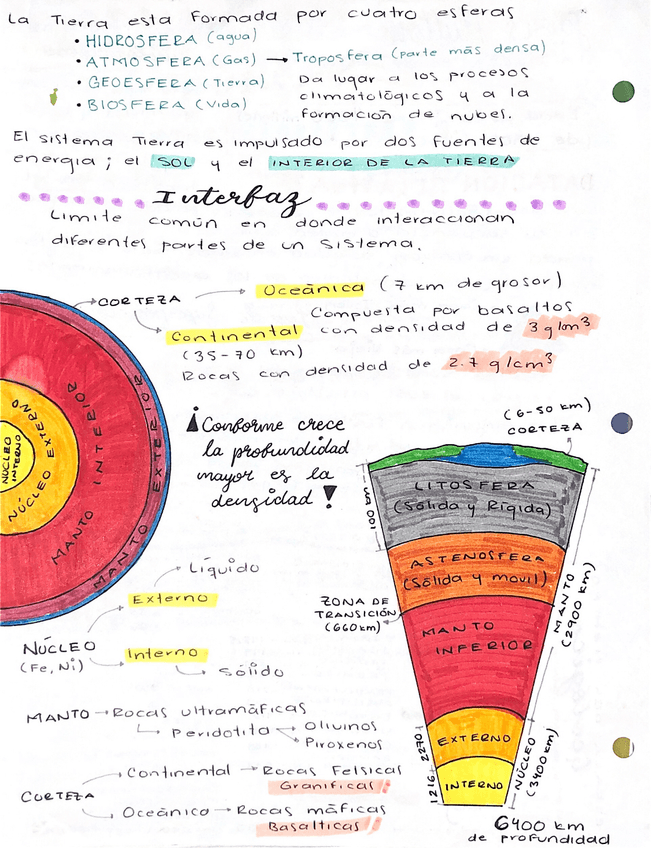 La Tierra esta formada por cuatro esferas
• HIDROSFERA (agua)
• ATMOSFERA (Gas) → Troposfera (parte más densa)
• GEOESFERA (Tierra) Da lugar a los procesos
climatológicos y a la
• BIOSFERA (Vida) formación de nubes.
El sistema Tierra es impulsado por dos fuentes de
energia; el SOL y el INTERIOR DE LA TIERRA
Interfaz
Limite común en donde interaccionan
diferentes partes de un sistema.
CORTEZA
Oceánica (7 km de grosor)
Compuesta por basaltos
con densidad de 3 g/m³
Continental
(35-70 km)
Rocas con densidad de 2.7 g/cm³
NÚCLEO INTERNO
NÚCLEO EXTERNO
MANTO INTERIOR
MANTO EXTERIOR
¡Conforme crece
la profundidad
mayor es la
densidad!
(6-50 km)
CORTEZA
LITOSFERA
(Sólida y Rígida)
100 km
ASTENOSFERA
(Sólida y movil)
ZONA DE
TRANSICIÓN
(660km)
MANTO
INFERIOR
MANTO
(2900 km)
EXTERNO
2270
INTERNO
1216
NÚCLEO
(3400 km)
6400 km
de profundidad
Líquido
Externo
NÚCLEO
(Fe, Ni)
Interno
sólido
MANTO → Rocas ultramáficas
Peridotita
Olivinos
Piroxenos
CORTEZA
Continental → Rocas Felsicas
Graníficas
Oceánico → Rocas máficas
Basalticas